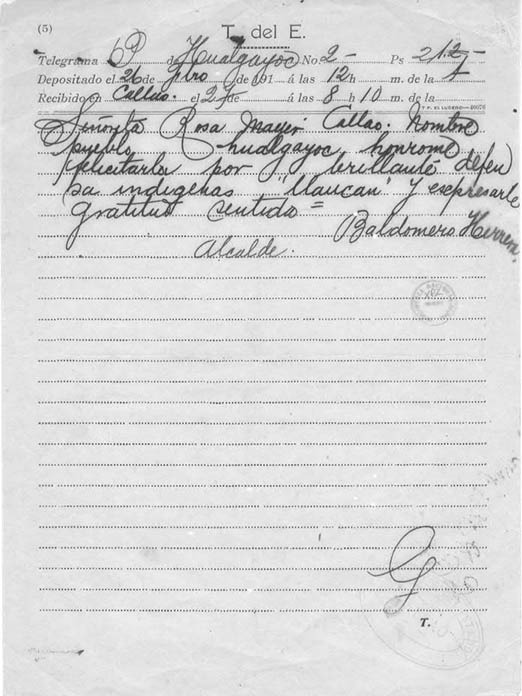 (5)
T. del E.
Telegrama 6P de Hualgayoc No 2- Ps 21.2-
Depositado el 26 de 7bro de 191 á las 12 h m. de la t
Recibido en Callao. el 27 de á las 8 h 10 m. de la
T P. EL LUCERO
Señorita Rosa Mayer Callao. Nombre
pueblo hualgayoc honrome
felicitarla por brillante defen
sa indigenas "llaucan" y esepresarle
gratitud sentida =
Baldomero Herrera.
Alcalde.
T.